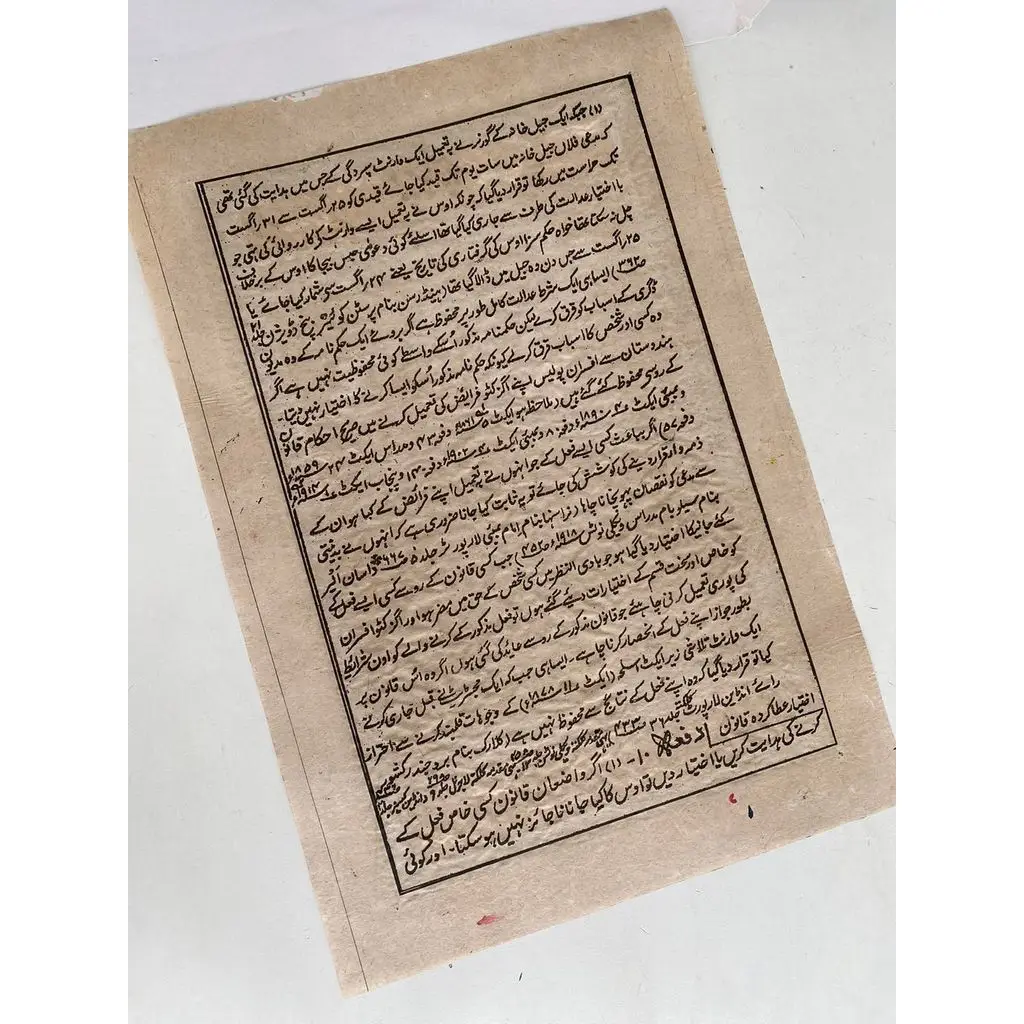 (۱) جبکہ ایک جیل خانہ کے گورنر نے بہ تعمیل ایک وارنٹ سپردگی کے جس میں ہدایت کی گئی تھی
کہ مدعی فلاں جیل خانہ میں سات یوم تک قید کیا جائے قیدی کو ۲۵ اگست سے ۳۱ اگست
تک حراست میں رکھا تو قرار دیا گیا کہ چونکہ اوس نے بہ تعمیل ایسے وارنٹ کر کارروائی کی تھی جو
با اختیار عدالت کی طرف سے جاری کیا گیا تھا اسلئے کوئی دعویٰ حبس بیجا کا اوس کے برخلاف
چل نہ سکتا تھا خواہ حکم سزا اوس کی گرفتاری کی تاریخ یعنے ۲۴ اگست سے شمار کیا جائے یا
۲۵ اگست سے جس دن وہ جیل میں ڈالا گیا تھا (ہینڈرسن بنام پرسٹن کوئینز بنچ ڈویژن جلد ۲۱
ص ۳۶۲) ایسا ہی ایک شرط عدالت کامل طور پر محفوظ ہے اگر بروئے ایک حکمنامہ کے وہ مدیون
ڈگری کے اسباب کو قرق کرے لیکن حکمنامہ مذکور اُسکے واسطے کوئی محفوظیت نہیں ہے اگر
وہ کسی اور شخص کا اسباب قرق کرلے کیونکہ حکم نامہ مذکور اُسکو ایسا کرنے کا اختیار نہیں دیتا۔
ہندوستان سے افسران پولیس اپنے اگزکٹو فرائض کی تعمیل کرنے میں صریح احکام قانون
کے روسے محفوظ کئے گئے ہیں (ملاحظہ ہو ایکٹ ۵ ۱۸۶۱ء دفعہ ۴۳ و مدراس ایکٹ ۲۴ ۱۸۵۹ء
و بمبئی ایکٹ ۴ ۱۸۹۰ء دفعہ ۸۰ و بمبئی ایکٹ ۴ ۱۹۰۲ء دفعہ ۱۴ و پنجاب ایکٹ ۱۹۱۴ء
دفعہ ۵۷) اگر بباعث کسی ایسے فعل کے جو انہوں نے بہ تعمیل اپنے فرائض کے کیا ہو ان کے
ذمہ وار قرار دینے کی کوشش کی جائے تو یہ ثابت کیا جانا ضروری ہے کہ انہوں نے بدنیتی
سے مدعی کو نقصان پہونچانا چاہا بنام امام بمبئی لارپورٹر جلد ۵ ص ۶۶۷
بنام سیلو بام مدراس ویکلی نوٹس ۱۹۱۸ء ص ۴۵۲) جب کسی قانون کے روسے کسی ایسے فعل کے
کئے جانیکا اختیار دیا گیا ہو جو بادی النظر میں کسی شخص کے حق میں مضر ہو اور اگزکٹو افسران
کو خاص اور سخت قسم کے اختیارات دیئے گئے ہوں تو فعل مذکور کے کرنے والے کو اون شرائط
کی پوری تعمیل کرنی چاہیئے جو قانون مذکور کے روسے عائد کی گئی ہوں اگر وہ اس قانون پر
بطور جواز اپنے فعل کے انحصار کرنا چاہے۔ ایسا ہی جب کہ ایک مجسٹریٹ نے قبل جاری کرنے
ایک وارنٹ تلاشی زیر ایکٹ اسلحہ (ایکٹ ۱۱ ۱۸۷۸ء) کے وجوہات قلمبند کرنے سے احتراز
کیا تو قرار دیا گیا کہ وہ اپنے فعل کے نتائج سے محفوظ نہیں ہے (کلارک بنام برد چندر کشور
رائے انڈین لارپورٹ کلکتہ جلد ۳۶ ص ۴۳۳
اختیار عطا کردہ قانون
دفعہ ۱۰۔ (۱) اگر واضعان قانون کسی خاص فعل کے
کرنے کی ہدایت کریں یا اختیار دیں تو اوس کا کیا جانا ناجائز نہیں ہوسکتا۔ اور کوئی